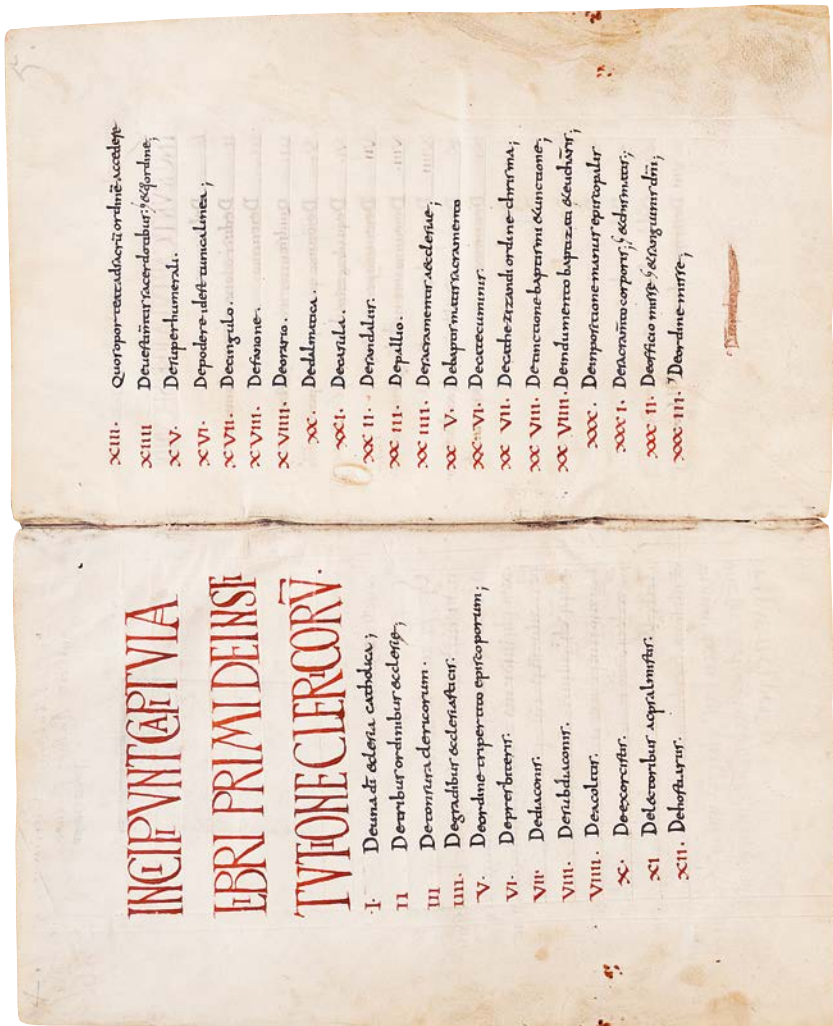 INCIPIUNT CAPITULA
LIBRI PRIMI DE INSTI
TUTIONE CLERICORŪ.
·I· Deuna dī eclesia catholica;
II Detribus ordinibus ecclesię;
III Detonsura clericorum.
IIII. Degradibus ecclesiasticis.
V. Deordine tripertito episcoporum;
VI. Depresbiteris.
VII· Dediaconis.
VIII. Desubdiaconis.
VIIII. Deacolitis.
X. Deexorcistis.
XI Delectoribus acpsalmistis.
XII. Dehostiariis.
XIII. Quos oporteat adsacrū ordinē accedere
XIIII Deuestim̄tis sacerdotalibus;
XV. Desuperhumerali.
XVI. Depodere idest tunica linea;
XVII. Decingulo.
XVIII. Defanone.
XVIIII. Deorario.
XX. Dedalmatica.
XXI. Decasula.
XXII. Desandaliis.
XXIII. Depallio.
XXIIII. Desacramentis aecclesiae;
XXV. Debaptismatis sacramento
XXVI. Decatecuminis.
XXVII. Decathezizandi ordine chrisma;
XXVIII. Detinctione baptismi &unctione;
XXVIIII. Deindumento baptizati &eucharis̄;
XXX. Deimpositione manus episcopalis
XXXI. Desacram̄to corporis;
XXXII. Deofficio missę &sanguinis dn̄i;
XXXIII. Deordine missę;